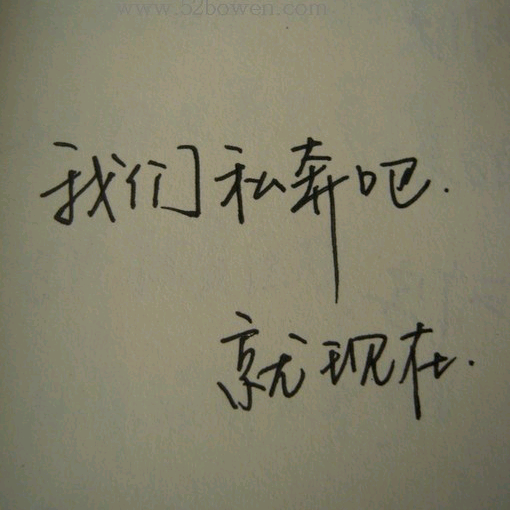 www.52bowen.com
我们私奔吧.
就现在.